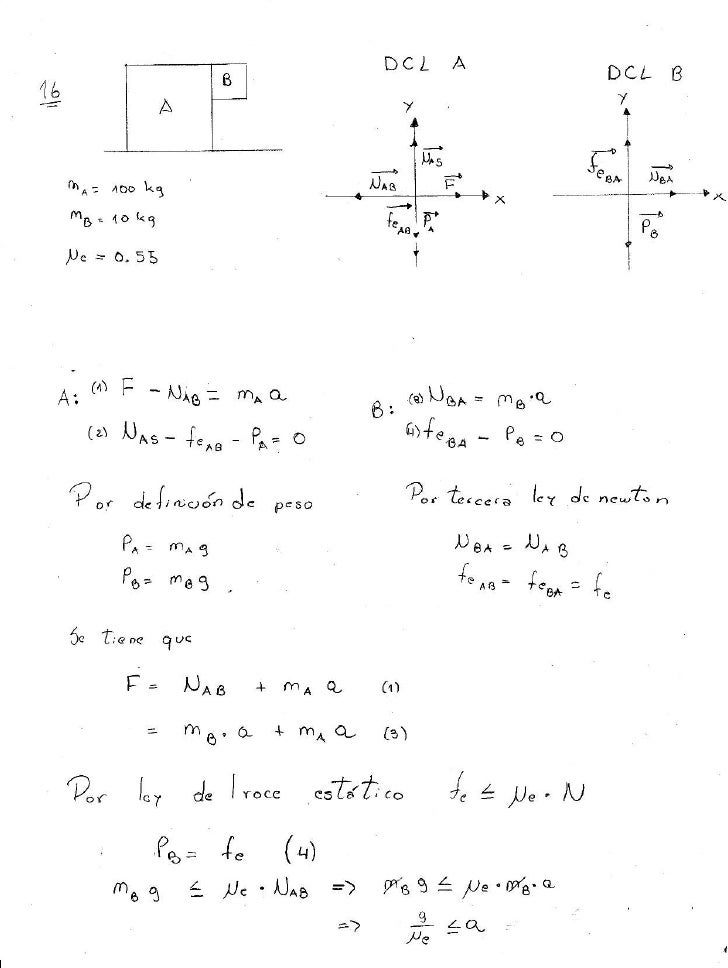 16
A
B
m_A = 100 kg
m_B = 10 kg
μe = 0.55
DCL A
Y
N_AS
N_AB
F
X
fe_AB
P_A
DCL B
Y
fe_BA
N_BA
X
P_B
A: (1) F - N_AB = m_A a
(2) N_AS - fe_AB - P_A = 0
B: (3) N_BA = m_B · a
(4) fe_BA - P_B = 0
Por definición de peso
P_A = m_A g
P_B = m_B g
Por tercera ley de newton
N_BA = N_AB
fe_AB = fe_BA = fe
Se tiene que
F = N_AB + m_A a (1)
= m_B · a + m_A a (3)
Por ley de roce estático fe ≤ μe · N
P_B = fe (4)
m_B g ≤ μe · N_AB => m_B g ≤ μe · m_B · a
=> g/μe ≤ a